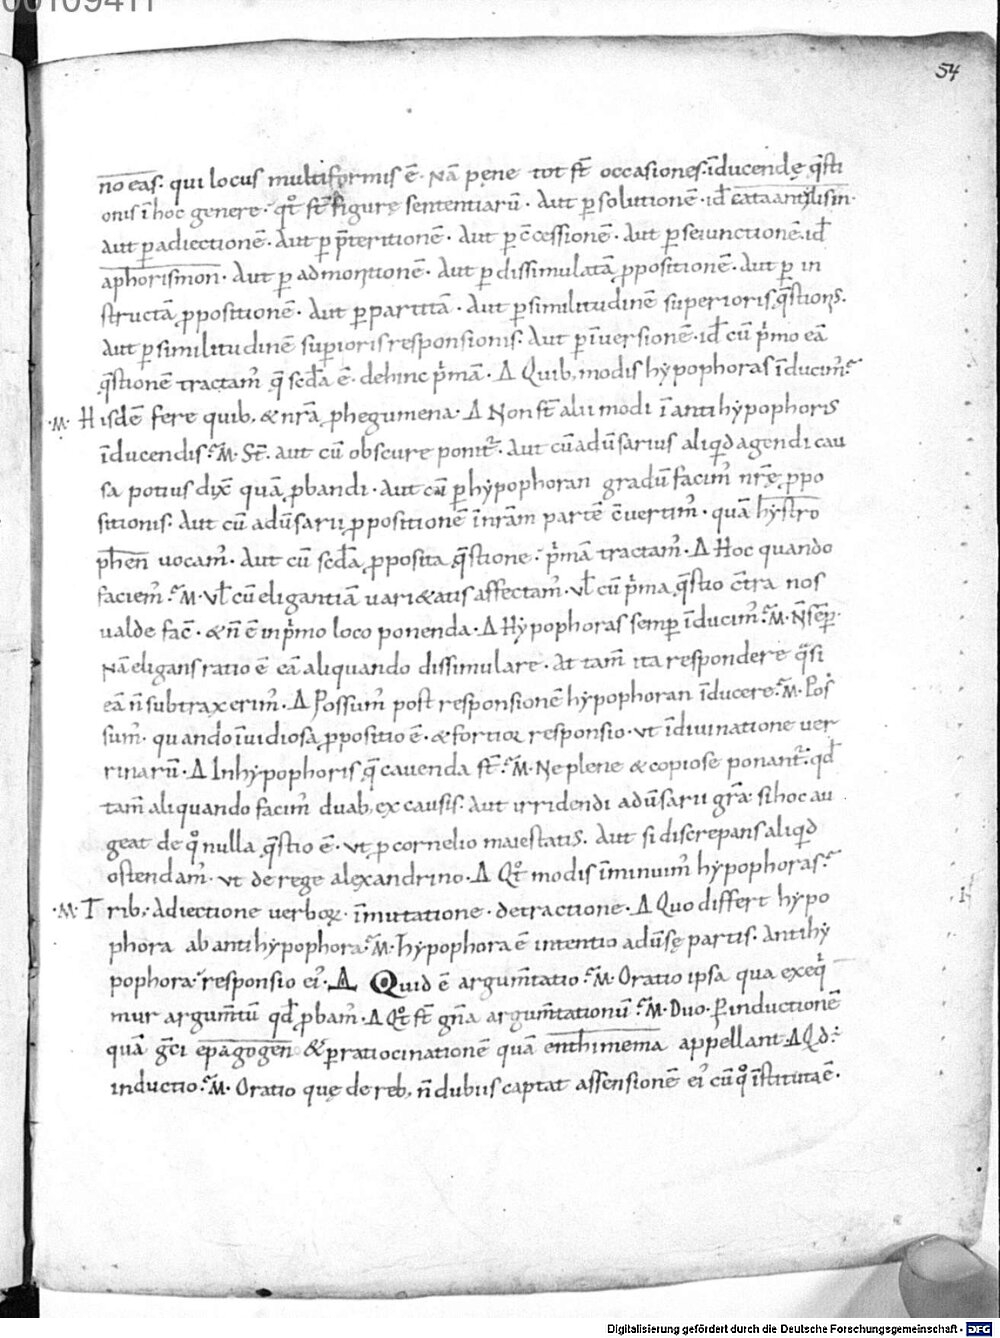 00109411
54
no eas: qui locus multiformis ē· Nā pene tot st̄ occasiones īducendę q̄sti
onis ī hoc genere· qt̄ st̄ figurę sententiarū· Aut p̄ solutionē· id̄ cata antylisin·
Aut p̄ adiectionē· Aut p̄ p̄teritionē· Aut p̄ c̄cessionē· Aut p̄ seiunctionē· id̄
aphorismon· Aut p̄ admonitionē· Aut p̄ dissimulatā p̄positionē· Aut p̄ in
structā p̄positionē· Aut p̄ partitā· Aut p̄ similitudinē superioris q̄stions·
Aut p̄ similitudinē superioris responsionis· Aut p̄ īuersionē· id̄ cū p̍mo eā
q̄stionē tractam᾿ q̄ scd̄a ē· dehinc p̍mā· Δ Quib; modis hypophoras īducim᾿
·M· Hisdē fere quib; & nr̄a p̄hegumena· Δ Non st̄ alii modi ī antihypophoris
īducendis· M· St̄· aut cū obscure ponit᾿· Aut cū adūsarius aliqd̄ agendi cau
sa potius dix̄ quā p̄bandi· Aut cū p̄ hypophoran gradū facim᾿ nr̄ę p̄po
sitionis· Aut cū adūsarii p̄positionē ī nr̄am partē c̄uertim᾿· quā hystro
phen uocam᾿· Aut cū scd̄a p̄posita q̄stione· p̍mā tractam᾿· Δ Hoc quando
faciem᾿· M· Vl̄ cū eligantiā uari&atis affectam᾿· Vl̄ cū p̍ma q̄stio c̄tra nos
ualde fac̄· & n̄ ē in p̍mo loco ponenda· Δ Hypophoras semp̄ īducim᾿· M· N̄ semp̄·
Nā eligans ratio ē eā aliquando dissimulare· At tam̄ ita respondere q̄si
eā n̄ subtraxerim᾿· Δ Possum᾿ post responsionē hypophoran īducere· M· Pos
sum᾿· quando īuidiosa p̄positio ē· & fortior responsio· ut ī diuinatione uer
rinarū· Δ In hypophoris q̄ cauenda st̄· M· Ne plene & copiose ponant᾿· qd̄
tam̄ aliquando facim᾿ duab; ex causis· Aut irridendi adūsarii gr̄a· si hoc au
geat de q̊ nulla q̄stio ē· ut p̄ cornelio maiestatis· Aut si discrepans aliqd̄
ostendam᾿· ut de rege alexandrino· Δ Qt̄ modis īminuim᾿ hypophoras·
·M· Trib; Adiectione uerborꝝ· īmutatione· detractione· Δ Quo differt hypo
phora ab antihypophora· M· hypophora ē intentio adūsę partis· Antihy
pophora· responsio ei᾿· Δ Quid ē argum̄tatio· M· Oratio ipsa qua exeq̍
mur argum̄tū qd̄ p̄bam᾿· Δ Qt̄ st̄ gn̄a argum̄tationū· M· Duo· p̄ inductionē
quā gr̄ci epagogen & p̄ ratiocinationē quā enthimema appellant· Δ Qd̄·
inductio· M· Oratio quę de reb; n̄ dubiis captat assensionē ei᾿ cū q̊ īstituta ē·
Digitalisierung gefördert durch die Deutsche Forschungsgemeinschaft - DFG